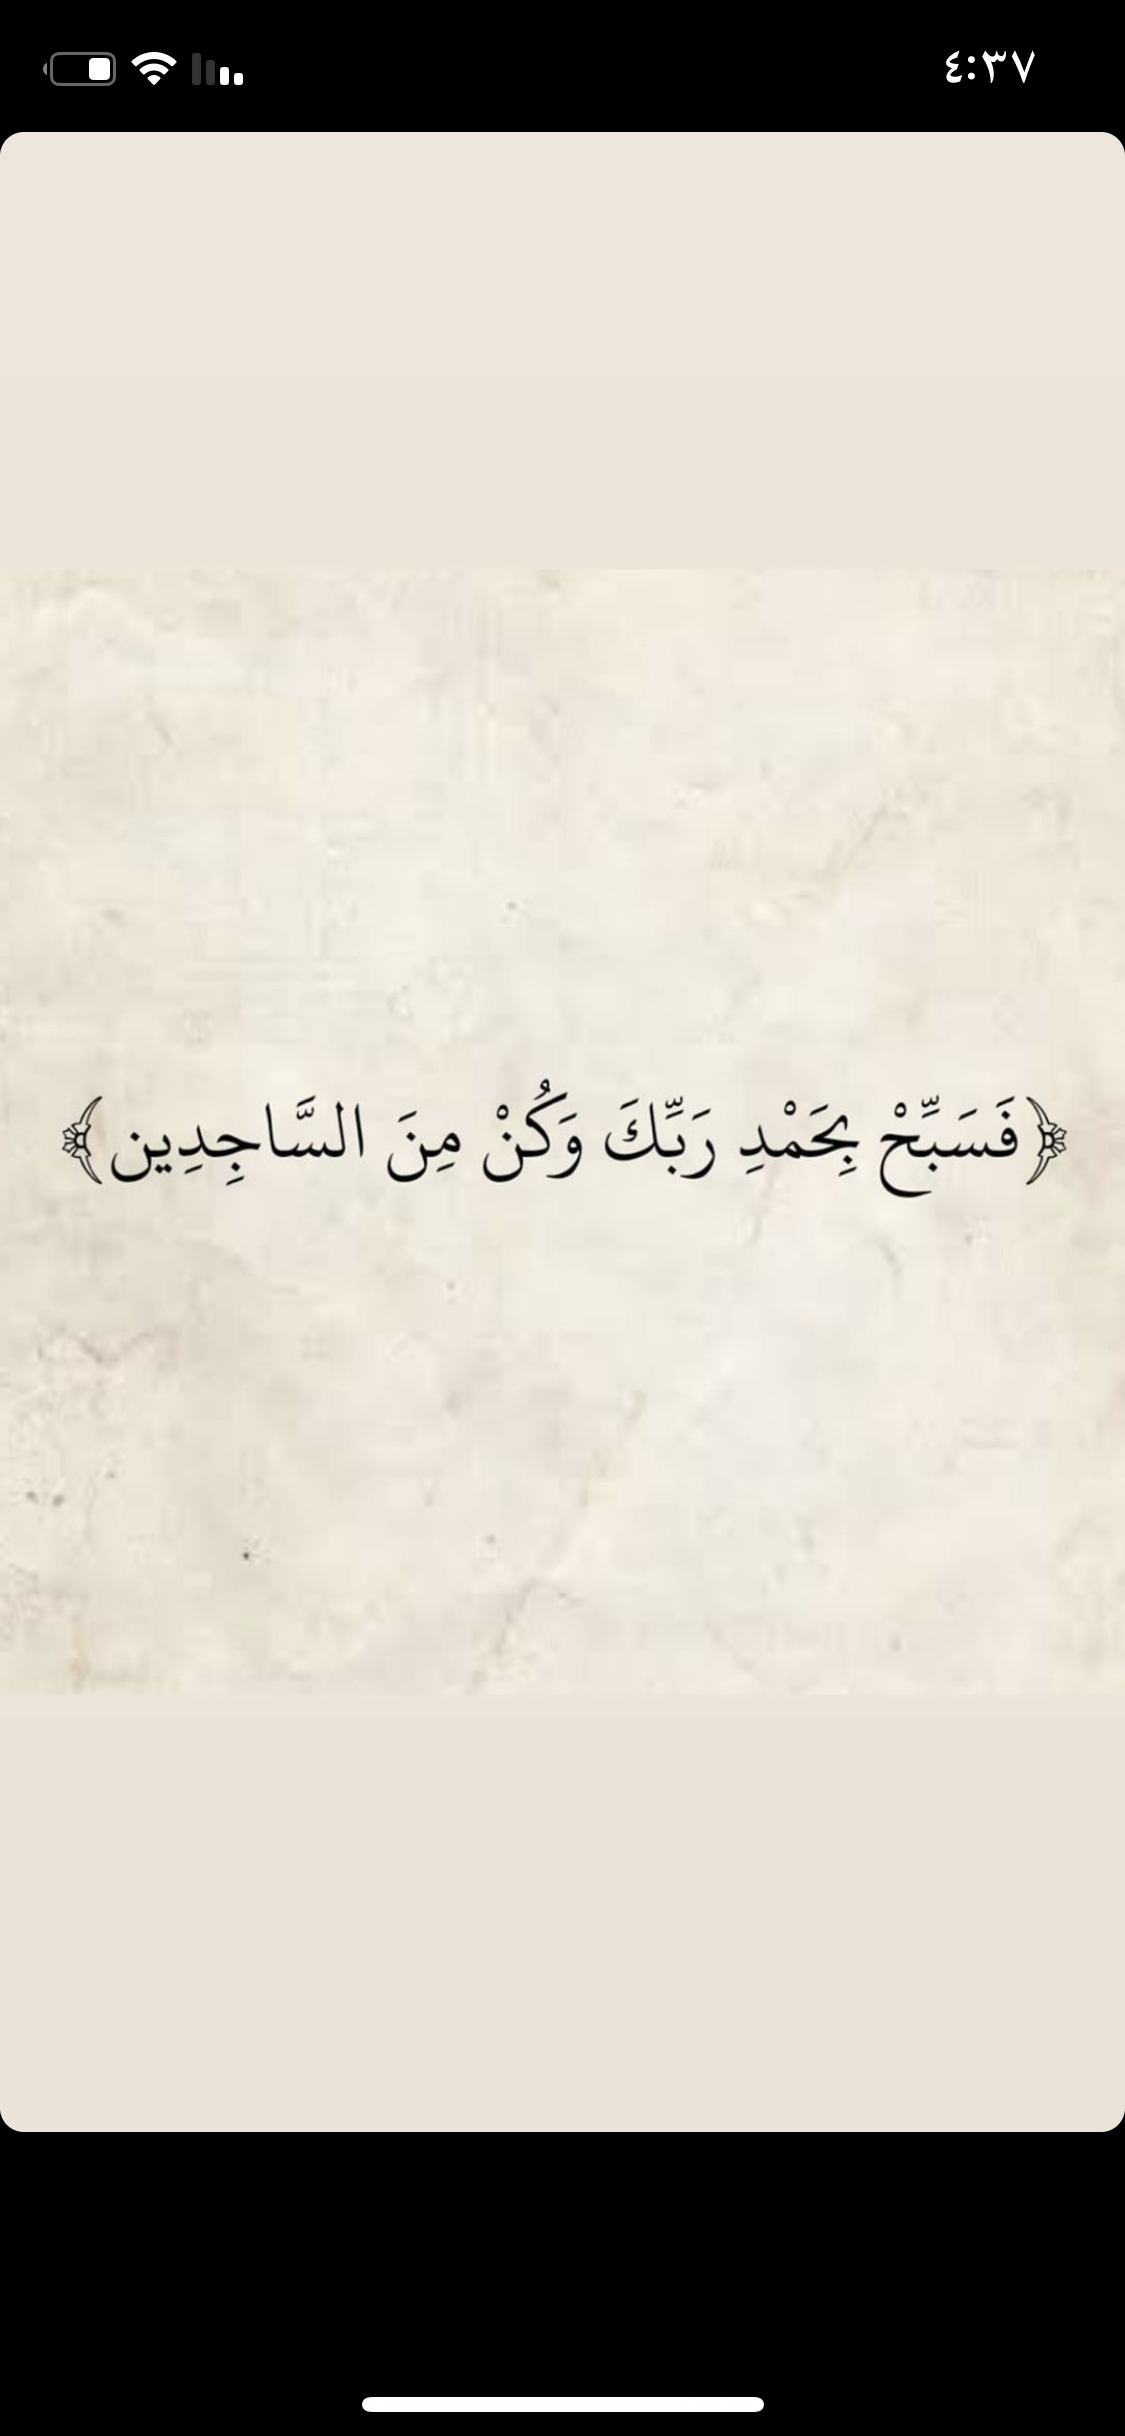 ٤:٣٧
﴿فَسَبِّحْ بِحَمْدِ رَبِّكَ وَكُنْ مِنَ السَّاجِدِين﴾